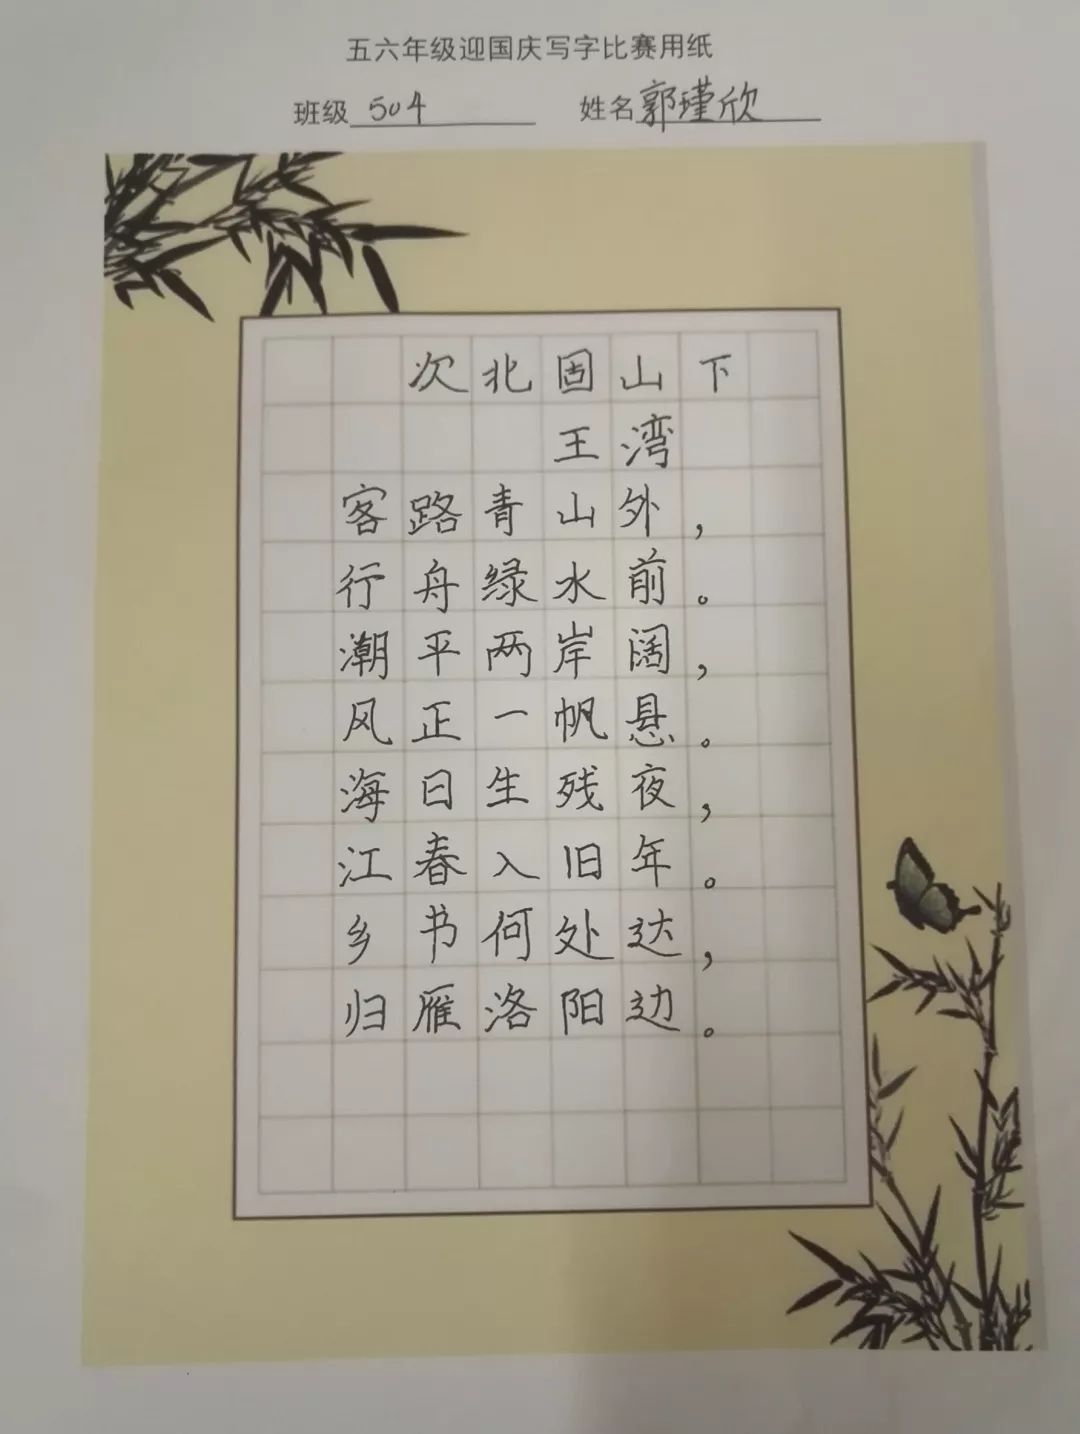 五六年级迎国庆写字比赛用纸
班级 504 姓名 郭瑾欣
次北固山下
王湾
客路青山外，
行舟绿水前。
潮平两岸阔，
风正一帆悬。
海日生残夜，
江春入旧年。
乡书何处达，
归雁洛阳边。